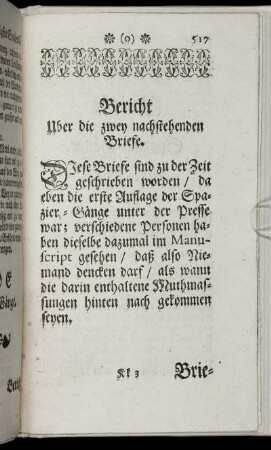 (0) 517
Bericht
Uber die zwey nachstehenden
Briefe.
DIese Briefe sind zu der Zeit
geschrieben worden / da
eben die erste Auflage der Spa-
zier-Gänge unter der Presse
war; verschiedene Personen ha-
ben dieselbe dazumal im Manu-
script gesehen / daß also Nie-
mand dencken darf / als wann
die darin enthaltene Muthmas-
sungen hinten nach gekommen
seyen.
Kk 3 Brie-